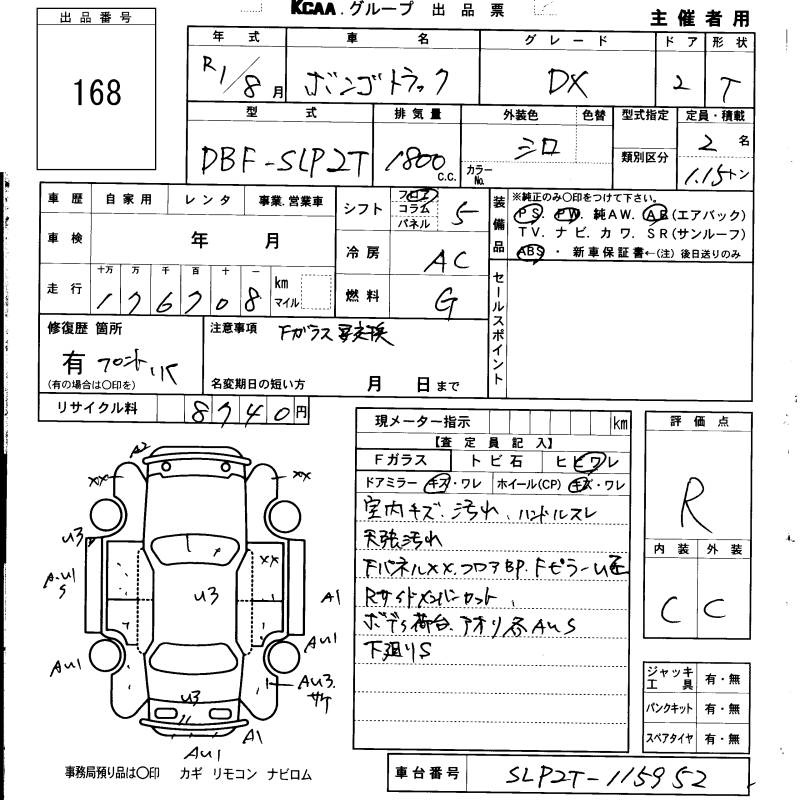 KCAA.グループ 出品票
主催者用
出品番号
168
年式 車名 グレード ドア 形状
R1/8月 ボンゴトラック DX 2 T
型式 排気量 外装色 色替 型式指定 定員・積載
DBF-SLP2T 1800c.c. シロ カラーNo. 類別区分 2名
1.15トン
車歴 自家用 レンタ 事業.営業車
車検 年 月
走行 十万 万 千 百 十 一 km マイル
176708
シフト フロア コラム パネル 5
冷房 AC
燃料 G
装備品
※純正のみ○印をつけて下さい。
PS. PW. 純AW. AB(エアバック)
TV. ナビ. カワ. SR(サンルーフ)
ABS・ 新車保証書←(注) 後日送りのみ
セールスポイント
修復歴 箇所
有 フロント
(有の場合は○印を)
注意事項 Fガラス要交換
名変期日の短い方 月 日まで
リサイクル料 8740円
現メーター指示 km
【査定員記入】
Fガラス トビ石 ヒビワレ
ドアミラー キズ・ワレ ホイール(CP) キズ・ワレ
室内キズ.汚れ.ハンドルスレ
天張汚れ
FパネルXX.フロアBP.Fピラー
Rサイドメンバーカット
ボディ荷台.アオリ AUS
下廻りS
評価点
R
内装 外装
C C
ジャッキ工具 有・無
パンクキット 有・無
スペアタイヤ 有・無
A2
XX XX
U3
AU1 S
XX
U3
A1
AU1
AU1
AU3.サケ
U3
A1
AU1
事務局預り品は○印 カギ リモコン ナビロム
車台番号 SLP2T-115952